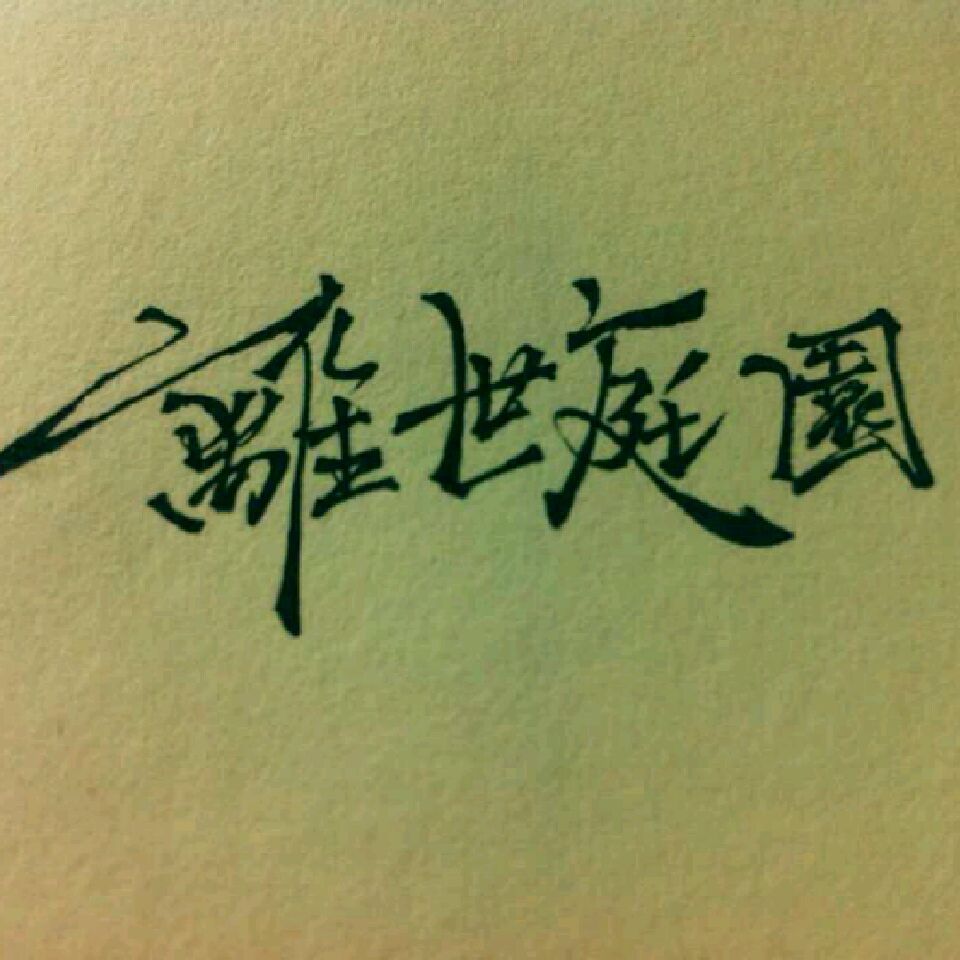 離世庭園